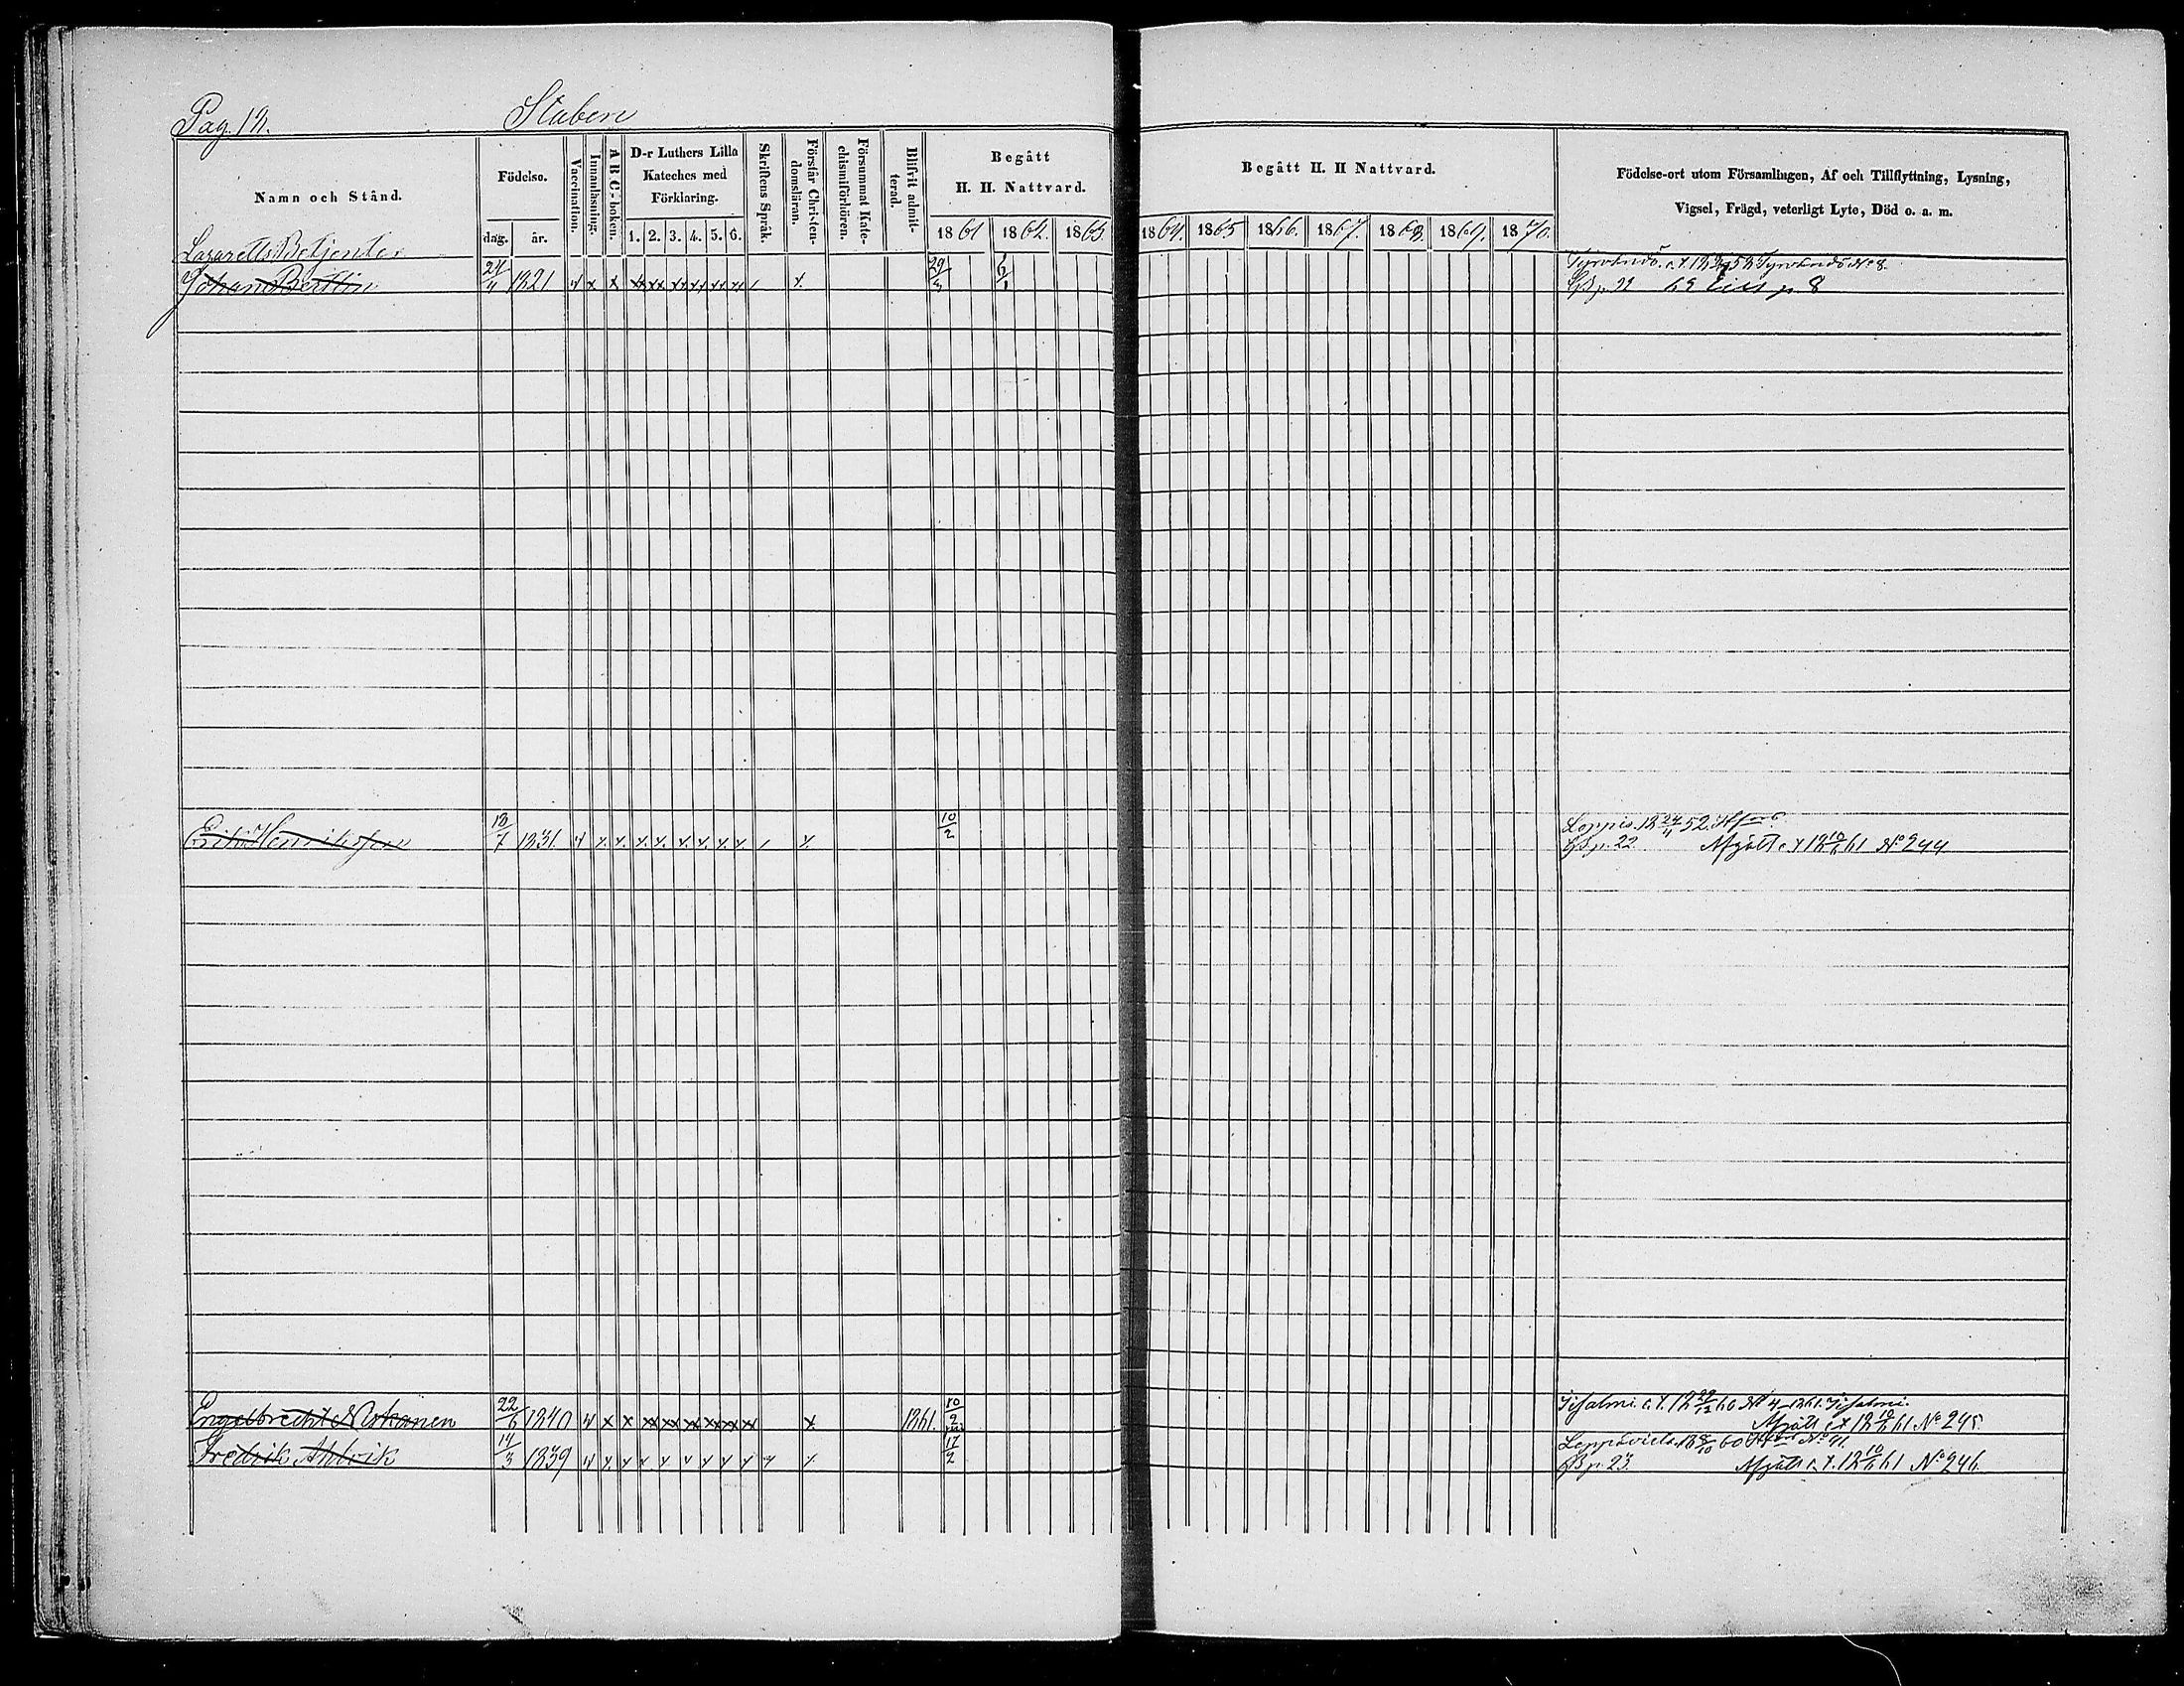 Pag. 12. Staben
Namn och Stånd.
Födelse.
dag. år.
Vaccination.
Innanläsning.
A B C-boken.
D-r Luthers Lilla
Kateches med
Förklaring.
1. 2. 3. 4. 5. 6.
Skriftens Språk.
Förstår Christen-
domsläran.
Försummat Kate-
chismiförhören.
Blifvit admit-
terad.
Begått
H. H. Nattvard.
1861 1862. 1863.
Begått H. H Nattvard.
1864. 1865 1866. 1867. 1868. 1869. 1870.
Födelse-ort utom Församlingen, Af och Tillflyttning, Lysning,
Vigsel, Frägd, veterligt Lyte, Död o. a. m.
Lazaretts Betjenter
Johan Bertlin 24/4 1821 x x x x x x x x / x 29/3 6/1
p. 22 p. 8
Erik Henriksson 18/7 1831. x x x x x x x x / x 10/2
Loppis. 18 24/11 52.
p. 22. Afgått 18 10/6 61 No 244
Engelbrecht Niskanen 22/6 1840 x x x x x x x x x x 1861. 10/2
Iisalmi 18 29/12 60 No 4 1861. Iisalmi.
Afgått 18 10/6 61 No 245
Fredrik Ahlvik 14/3 1839 x x x x x x x x x x 17/2
Leppävirta 18 8/10 60 No 91.
p. 23. Afgått 18 10/6 61 No 246.